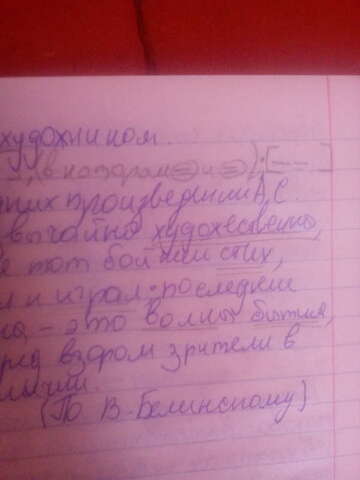 художником.
, (в котором = и =): [--- --- ]
них произведений А.С.
вычайно художественно,
е тот бой или стих,
л и играл; последнее
на, - это волны бытия,
ред взором зрители в
личии.
(По В. Белинскому)